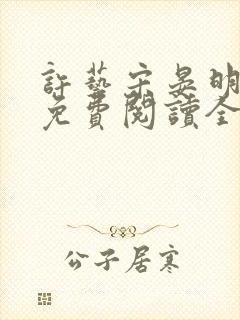 許藝宗晏明
免費閱讀全
公子居寒